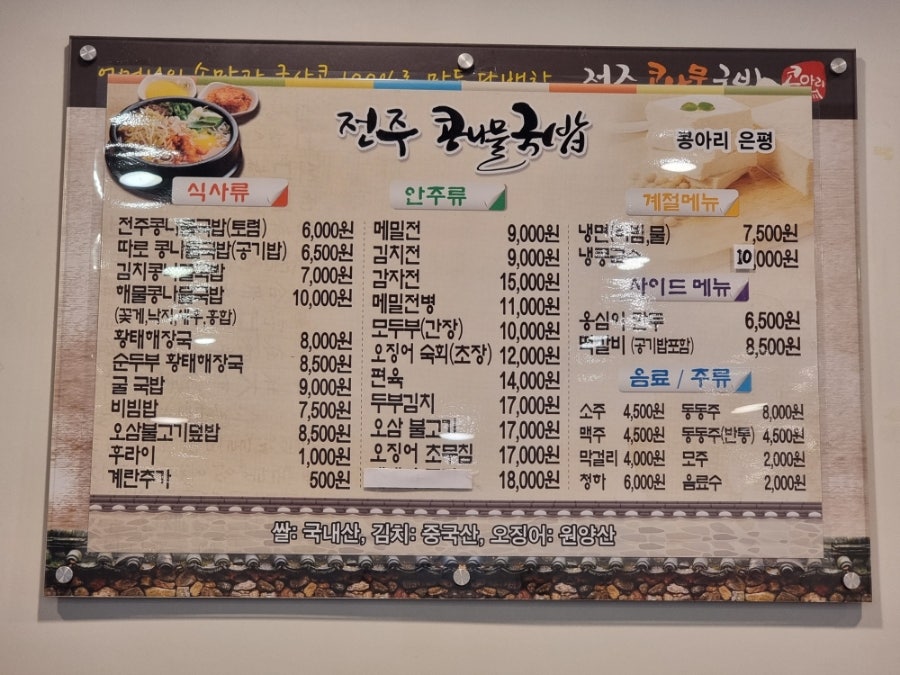 전주 콩나물국밥
전주 콩나물국밥
콩아리 은평
식사류
전주콩나물국밥(토렴) 6,000원
따로 콩나물국밥(공기밥) 6,500원
김치콩나물국밥 7,000원
해물콩나물국밥 10,000원
(꽃게,낙지,새우,홍합)
황태해장국 8,000원
순두부 황태해장국 8,500원
굴 국밥 9,000원
비빔밥 7,500원
오삼불고기덮밥 8,500원
후라이 1,000원
계란추가 500원
안주류
메밀전 9,000원
김치전 9,000원
감자전 15,000원
메밀전병 11,000원
모두부(간장) 10,000원
오징어 숙회(초장) 12,000원
편육 14,000원
두부김치 17,000원
오삼 불고기 17,000원
오징어 초무침 17,000원
18,000원
계절메뉴
냉면(비빔,물) 7,500원
냉콩국수 10,000원
사이드 메뉴
옹심이 만두 6,500원
떡갈비 (공기밥포함) 8,500원
음료 / 주류
소주 4,500원 동동주 8,000원
맥주 4,500원 동동주(반통) 4,500원
막걸리 4,000원 모주 2,000원
청하 6,000원 음료수 2,000원
쌀: 국내산, 김치: 중국산, 오징어: 원양산